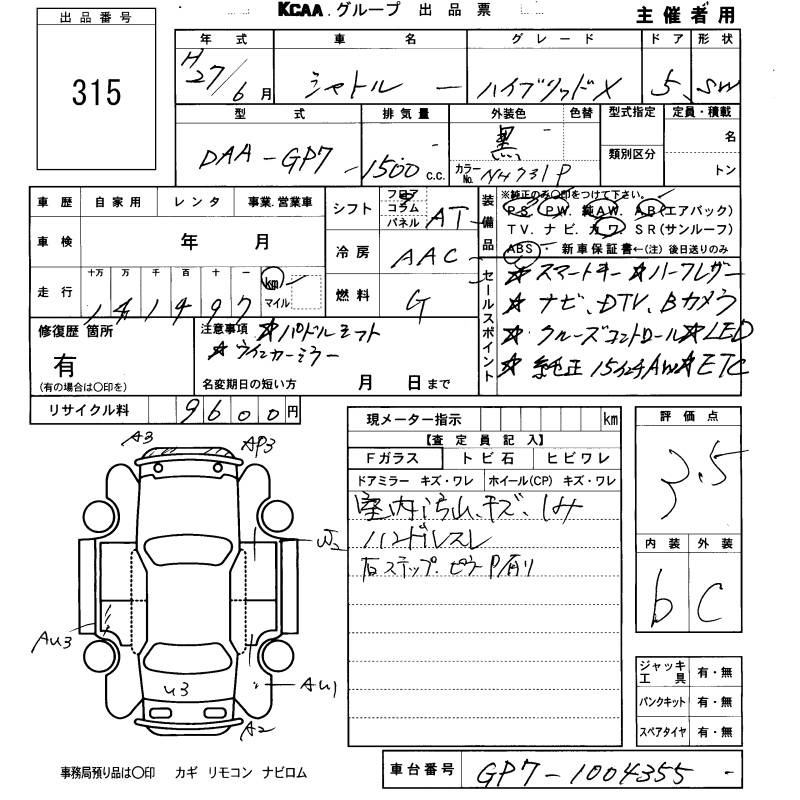 KCAA.グループ 出品票
主催者用
出品番号
315
年式 車名 グレード ドア 形状
H27/6月 シャトル ー ハイブリッドX 5 SW
型式 排気量 外装色 色替 型式指定 定員・積載
DAA-GP7- 1500 c.c. 黒 名
類別区分
カラーNo. NH731P トン
車歴 自家用 レンタ 事業.営業車
車検 年 月
走行 十万 万 千 百 十 一 km マイル
141497
シフト フロア コラム パネル AT
冷房 AAC
燃料 G
装備品
※純正のみ○印をつけて下さい。
PS. PW. 純AW. AB(エアバック)
TV. ナビ. カワ SR(サンルーフ)
ABS・新車保証書←(注)後日送りのみ
セールスポイント
☆スマートキー ☆ハーフレザー
☆ナビ、DTV、Bカメラ
☆クルーズコントロール ☆LED
☆純正15インチAW ☆ETC
修復歴 箇所
有
(有の場合は○印を)
注意事項 ☆パドルシフト
☆ウインカーミラー
名変期日の短い方 月 日まで
リサイクル料 9600円
現メーター指示 km
【査定員記入】
Fガラス トビ石 ヒビワレ
ドアミラー キズ・ワレ ホイール(CP) キズ・ワレ
室内汚れ、キズ、しみ
ハンドルスレ
右ステップ.ピラーP有り
評価点
3.5
内装 外装
b C
A3
AP3
W2
AU3
U3
AU1
A2
ジャッキ工具 有・無
パンクキット 有・無
スペアタイヤ 有・無
事務局預り品は○印 カギ リモコン ナビロム
車台番号 GP7-1004355 -